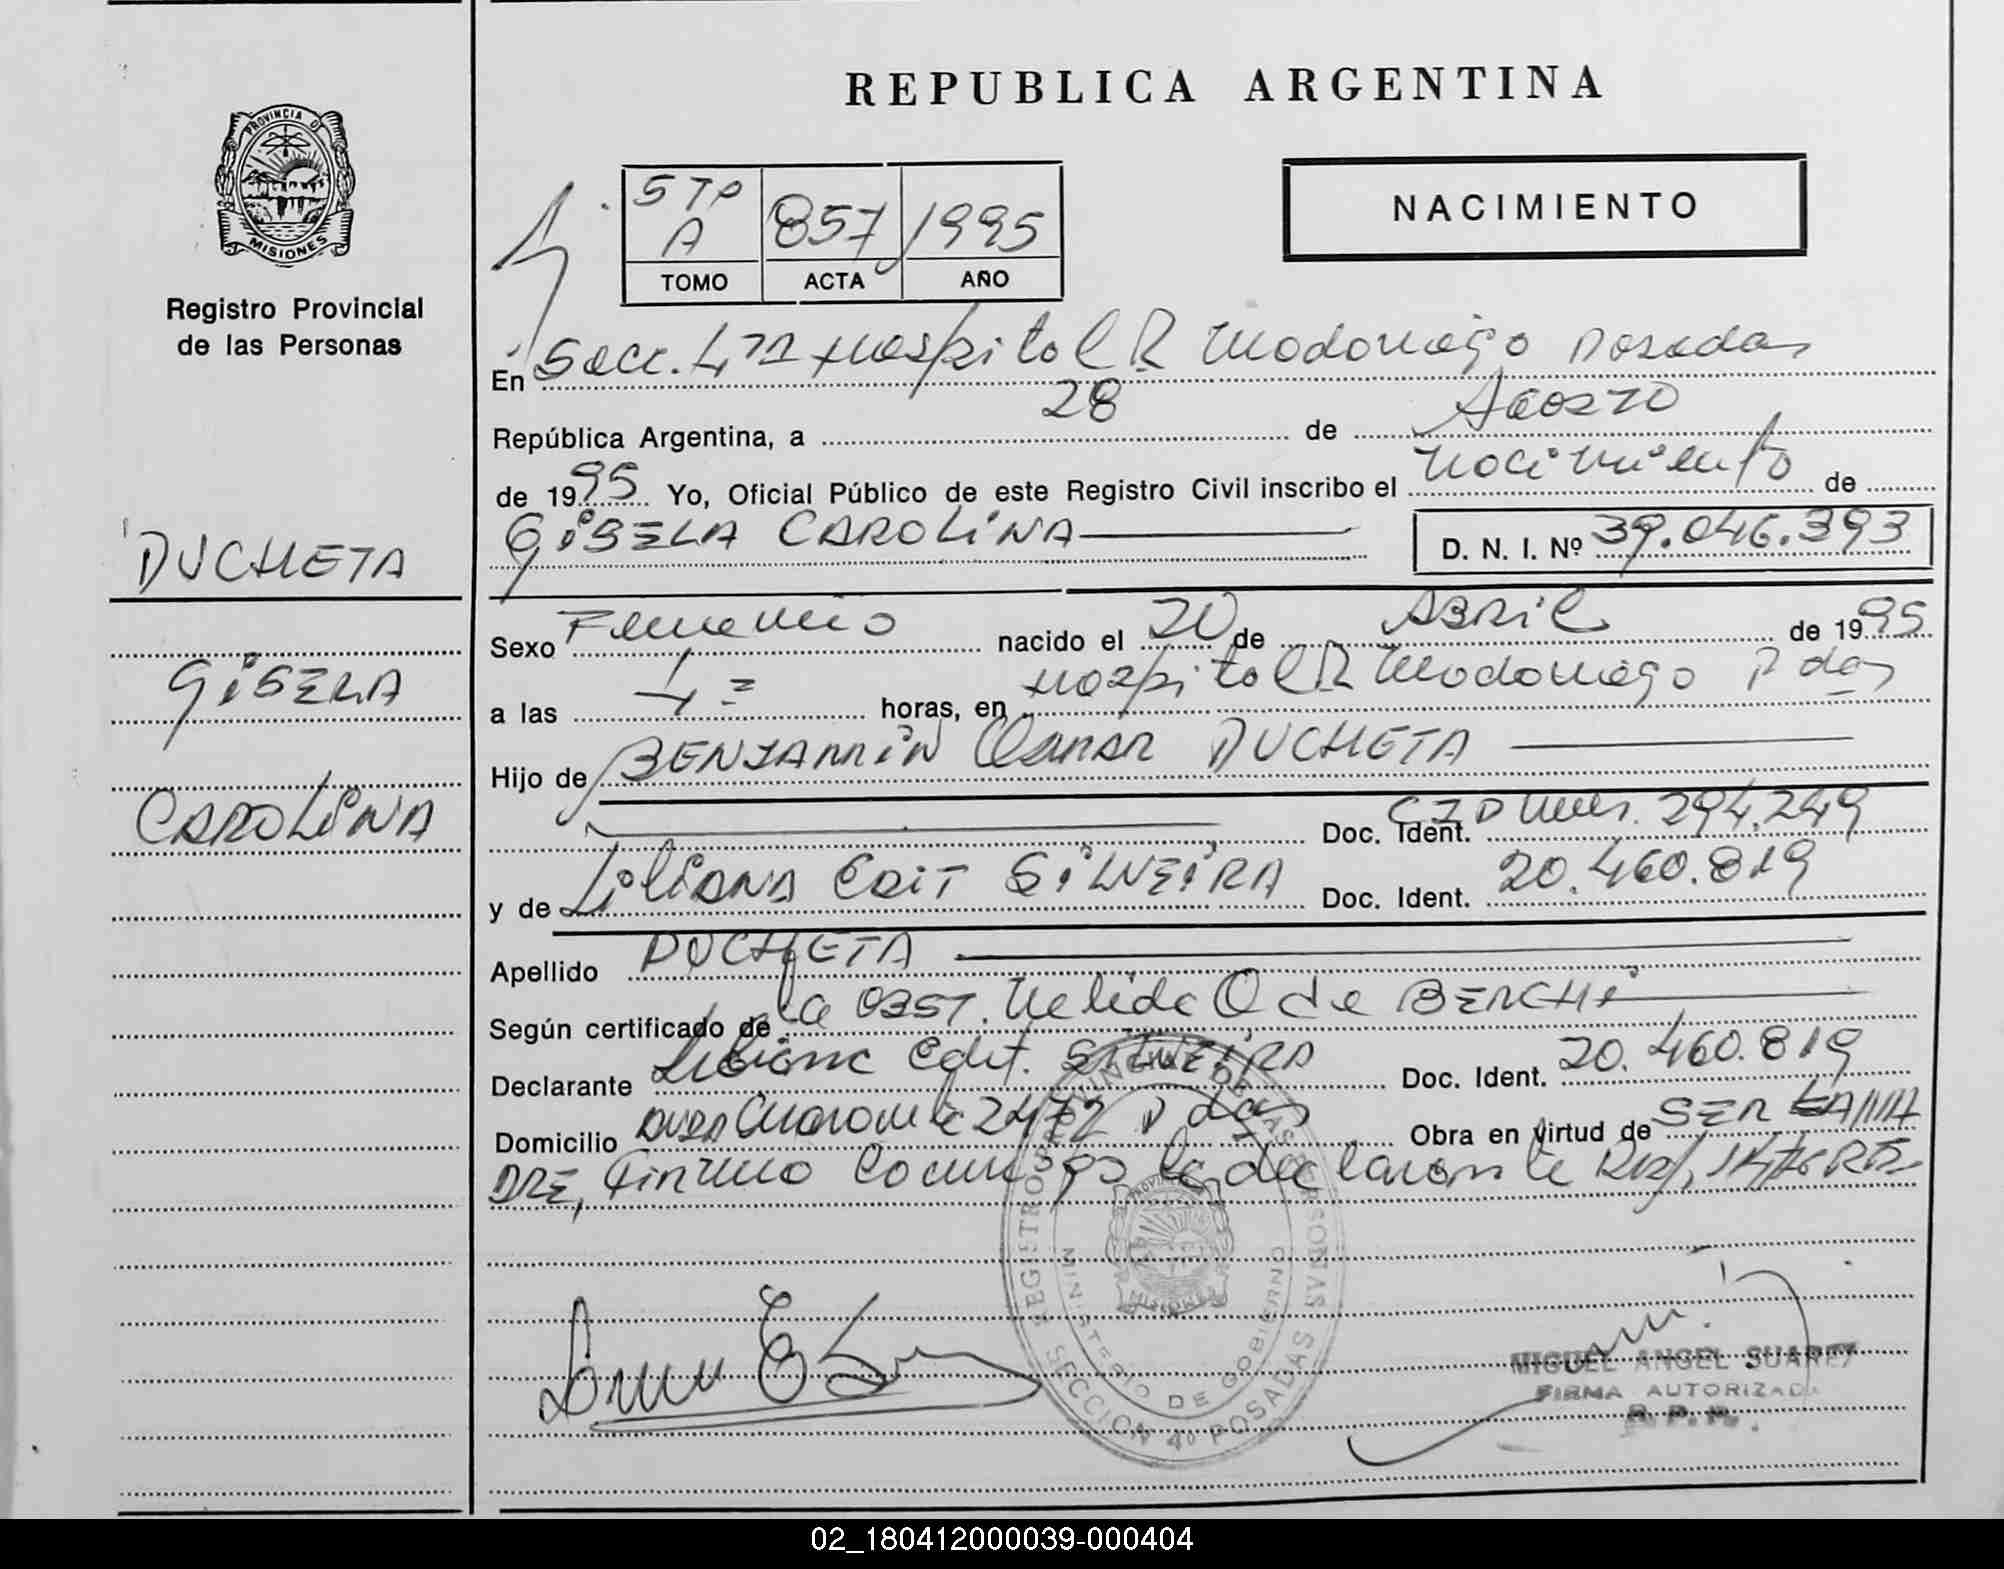 REPUBLICA ARGENTINA
PROVINCIA DE
MISIONES
Registro Provincial
de las Personas
NACIMIENTO
5 TO A 857 1995
TOMO ACTA AÑO
En Secc. 4ta Hospital R Madariaga Posadas
República Argentina, a 28 de Agosto
de 1995 Yo, Oficial Público de este Registro Civil inscribo el nacimiento de
DUCHETA
GiSELA CAROLiNA D. N. I. Nº 39.046.393
Sexo Femenino nacido el 20 de ABRiL de 1995
GiSELA
a las 4= horas, en Hospital R Madariaga Pdas
Hijo de BENJAMiN Omar DUCHETA
CAROLiNA
Doc. Ident. C I D 294.249
y de LiLiANA EDiT SiLVEiRA Doc. Ident. 20.460.819
Apellido DUCHETA
Según certificado de la OBST. Nelida O de BERCHi
Declarante Liliana Edit. SiLVEiRA Doc. Ident. 20.460.819
Domicilio 2472 Pdas Obra en virtud de SER LA MA
DRE, Firmo la declarante
REGISTRO PROVINCIAL DE LAS PERSONAS
MINISTERIO DE GOBIERNO
SECCION 4º POSADAS
MIGUEL ANGEL SUAREZ
FIRMA AUTORIZADA
R. P. P.
02_180412000039-000404